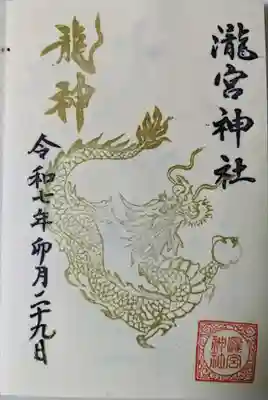 瀧宮神社
龍神
令和七年卯月二十九日
瀧宮神社